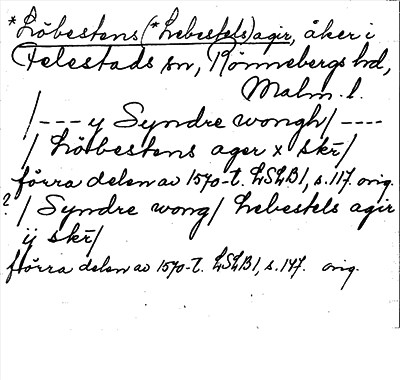 *Löbestens (*Lebestels) agir, åker i
Felestads sn, Rönnebergs hd,
Malm. l.
/--- y Syndre wongh/ ----
/ Löbestens ager x skr̄/
förra delen av 1570-t. LSLB1, s. 117. orig.
? / Syndre wong/ Lebestels agir
ij skr̄/
förra delen av 1570-t. LSLB1, s. 147. orig.